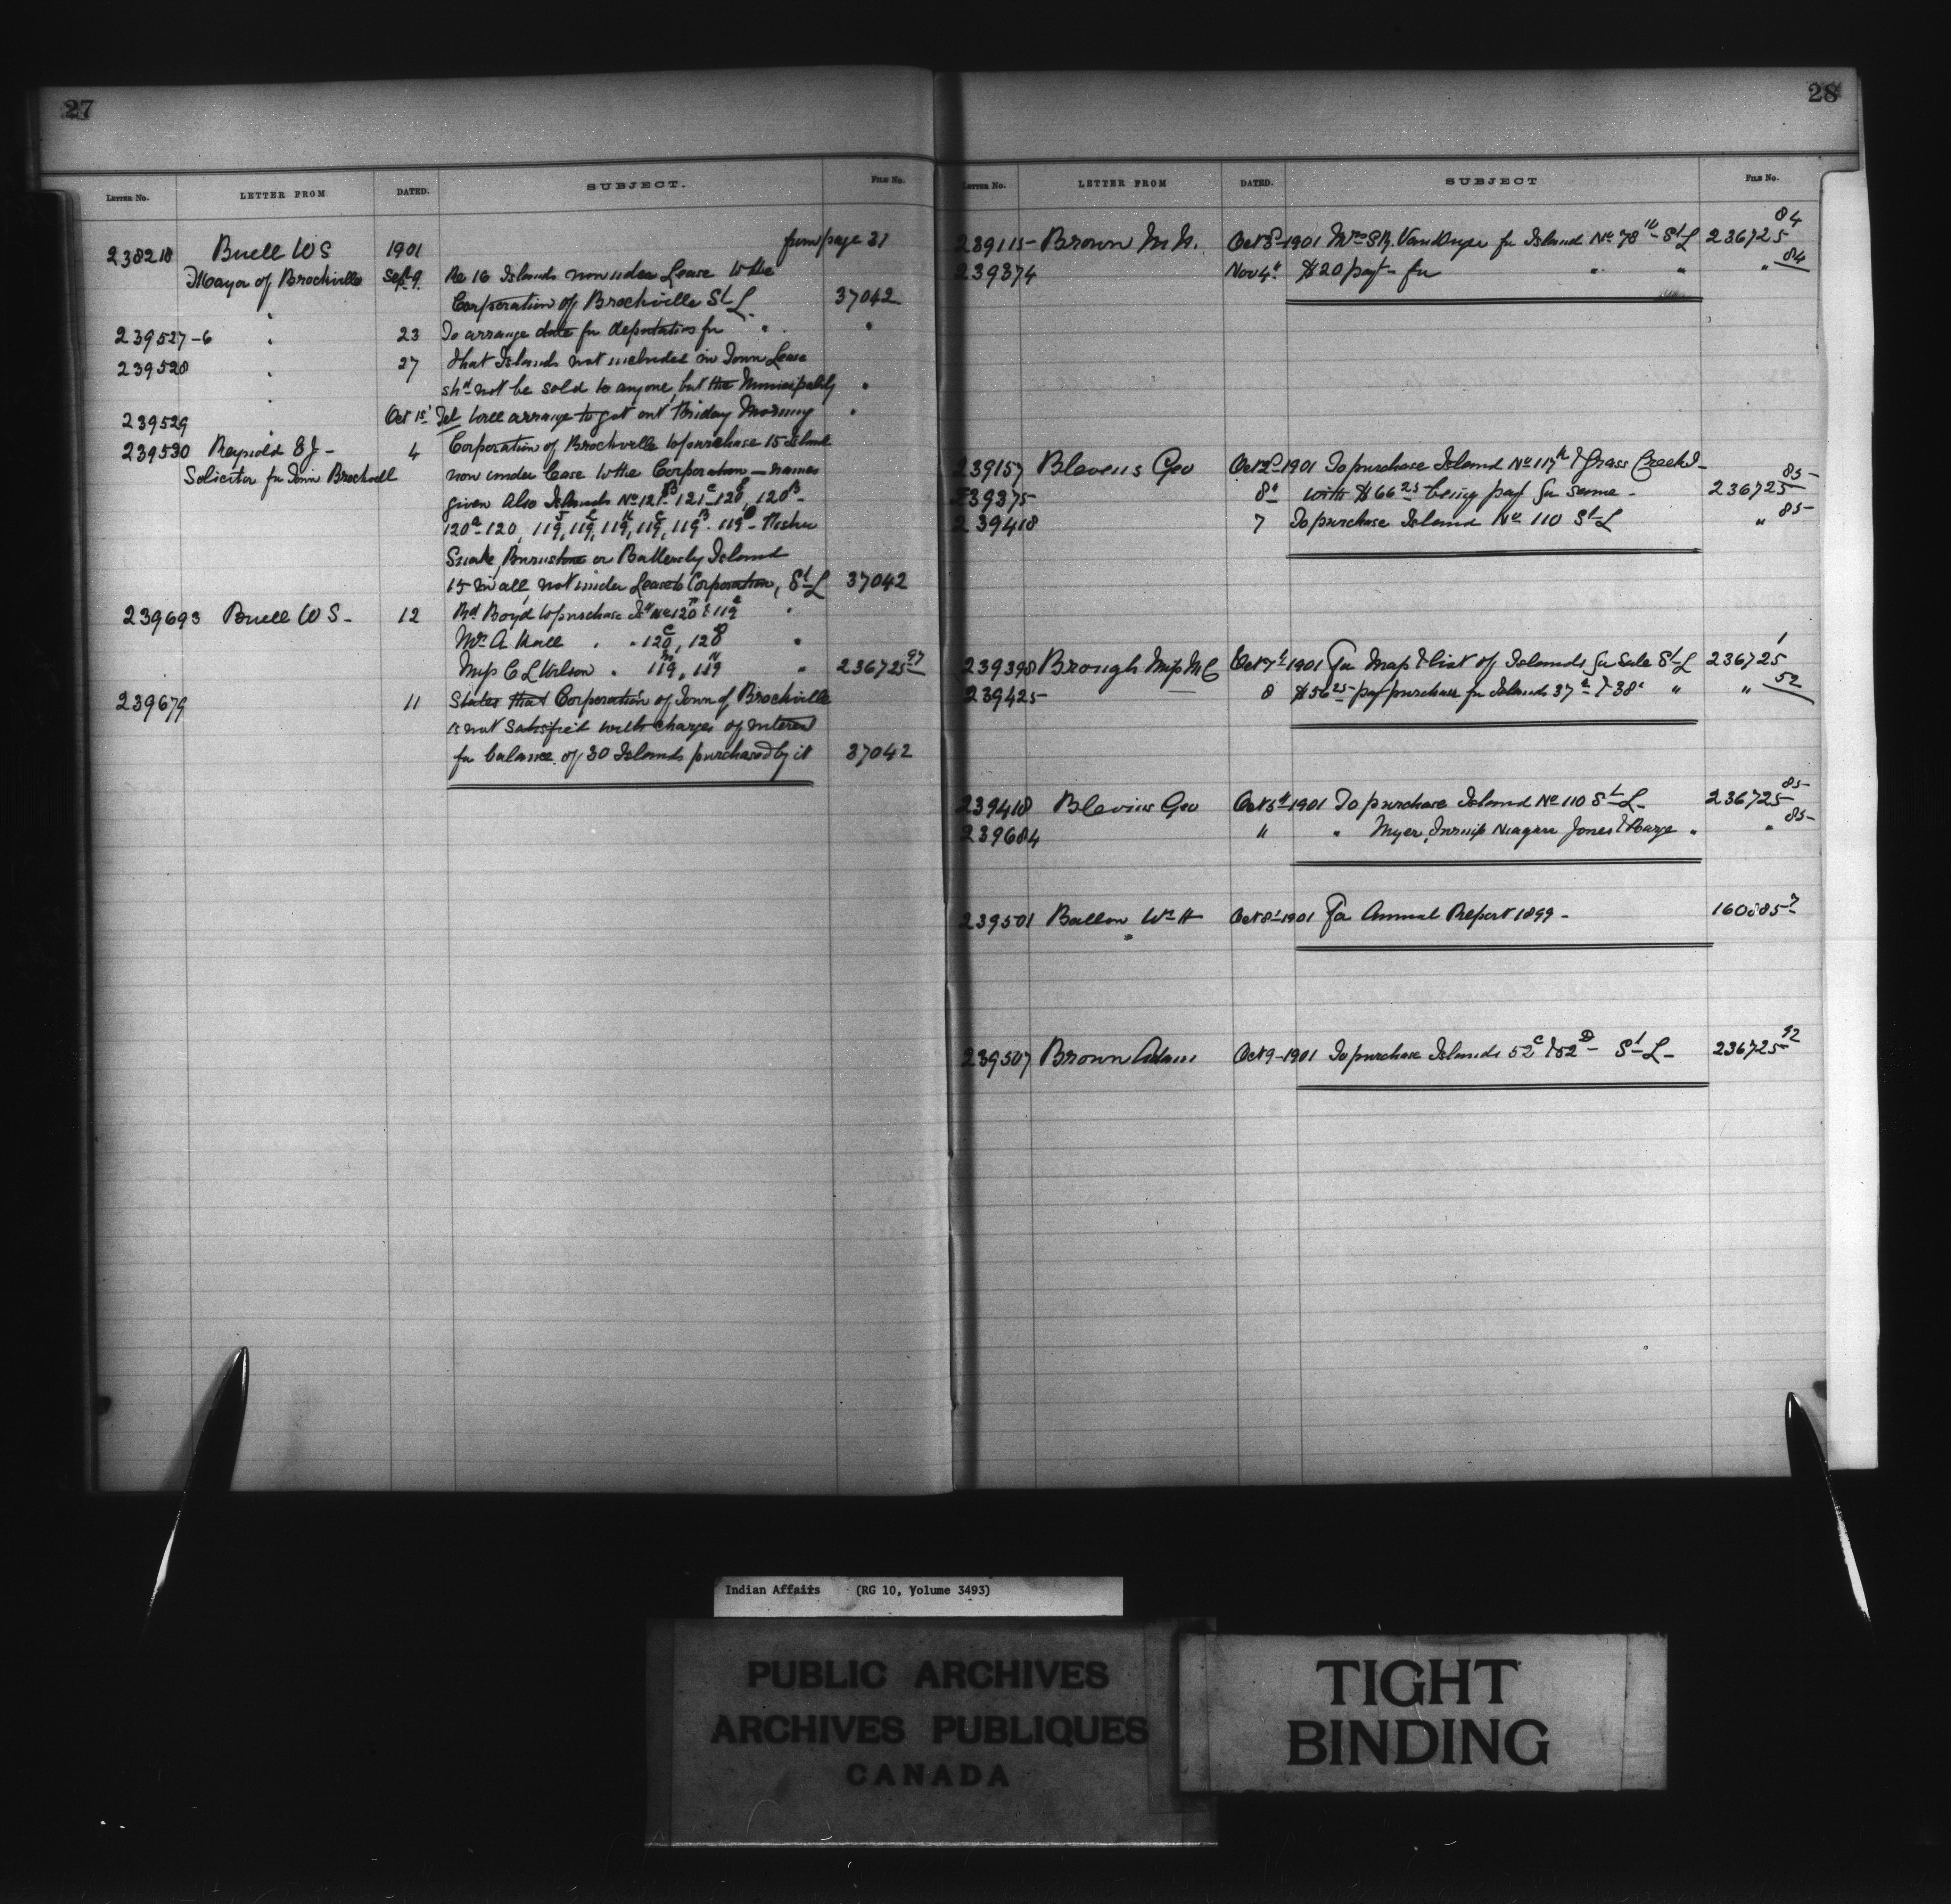 27
LETTER NO. LETTER FROM DATED. SUBJECT. FILE NO.
from page 21
238218 Buell W S 1901
Mayor of Brockville Sept 9. Re 16 Islands now under Lease to the
Corporation of Brockville St L. 37042
239527-6 " 23 To arrange date for deputation for " . "
239528 " 27 that Islands not included in Town Lease
shd not be sold to anyone, but the Municipality "
239529 " Oct 1st Tel will arrange to get out Friday Morning "
239530 Reynold E J - 4 Corporation of Brockville to purchase 15 Islands
Solicitor for Town Brockvill now under Lease to the Corporation — names
given Also Islands No 121B 121C 120E, 120B -
120A - 120, 119J, 119L, 119K, 119C, 119B. 119D -
Snake, or Battersby Island
15 in all, not under Lease to Corporation, St L 37042
239693 Buell W S - 12 Rd Boyd to purchase Isd No 120 & 119 "
Mr A Hall " " 120C, 120D "
Miss C L Wilson " 119M, 119N " 236725 97
239679 11 States that Corporation of Town of Brockville
is not satisfied with charges of interest
for balance of 30 Islands purchased by it 37042
28
LETTER NO. LETTER FROM DATED. SUBJECT FILE NO.
239115 - Brown M N. Oct 3d 1901 Mrs S R. VanDuze for Island No 78 - St L 236725 84
239374 Nov 4th $20 payt - for " " " 84
239157 Blevens Geo Oct 2d 1901 To purchase Island No 117K & Grass Creek I -
239375 - 8th with $66 25 being payt for same - 236725 85
239418 7 To purchase Island No 110 St L " 85
239398 Brough Miss M C Oct 7th 1901 For Map & list of Islands for Sale St L 236725 1
239425 - 8 $56 25 payt purchase for Islands 37 & 38 " " 52
239418 Blevins Geo Oct 5th 1901 To purchase Island No 110 St L - 236725 85
239684 " " Myer, Niagara Jones & " " 85
239501 Ballou Wm H Oct 8th 1901 For Annual Report 1899 - 160885 7
239507 Brown Adam Oct 9 - 1901 To purchase Islands 52C & 52D - St L - 236725 92
Indian Affairs (RG 10, Volume 3493)
PUBLIC ARCHIVES
ARCHIVES PUBLIQUES
CANADA
TIGHT
BINDING